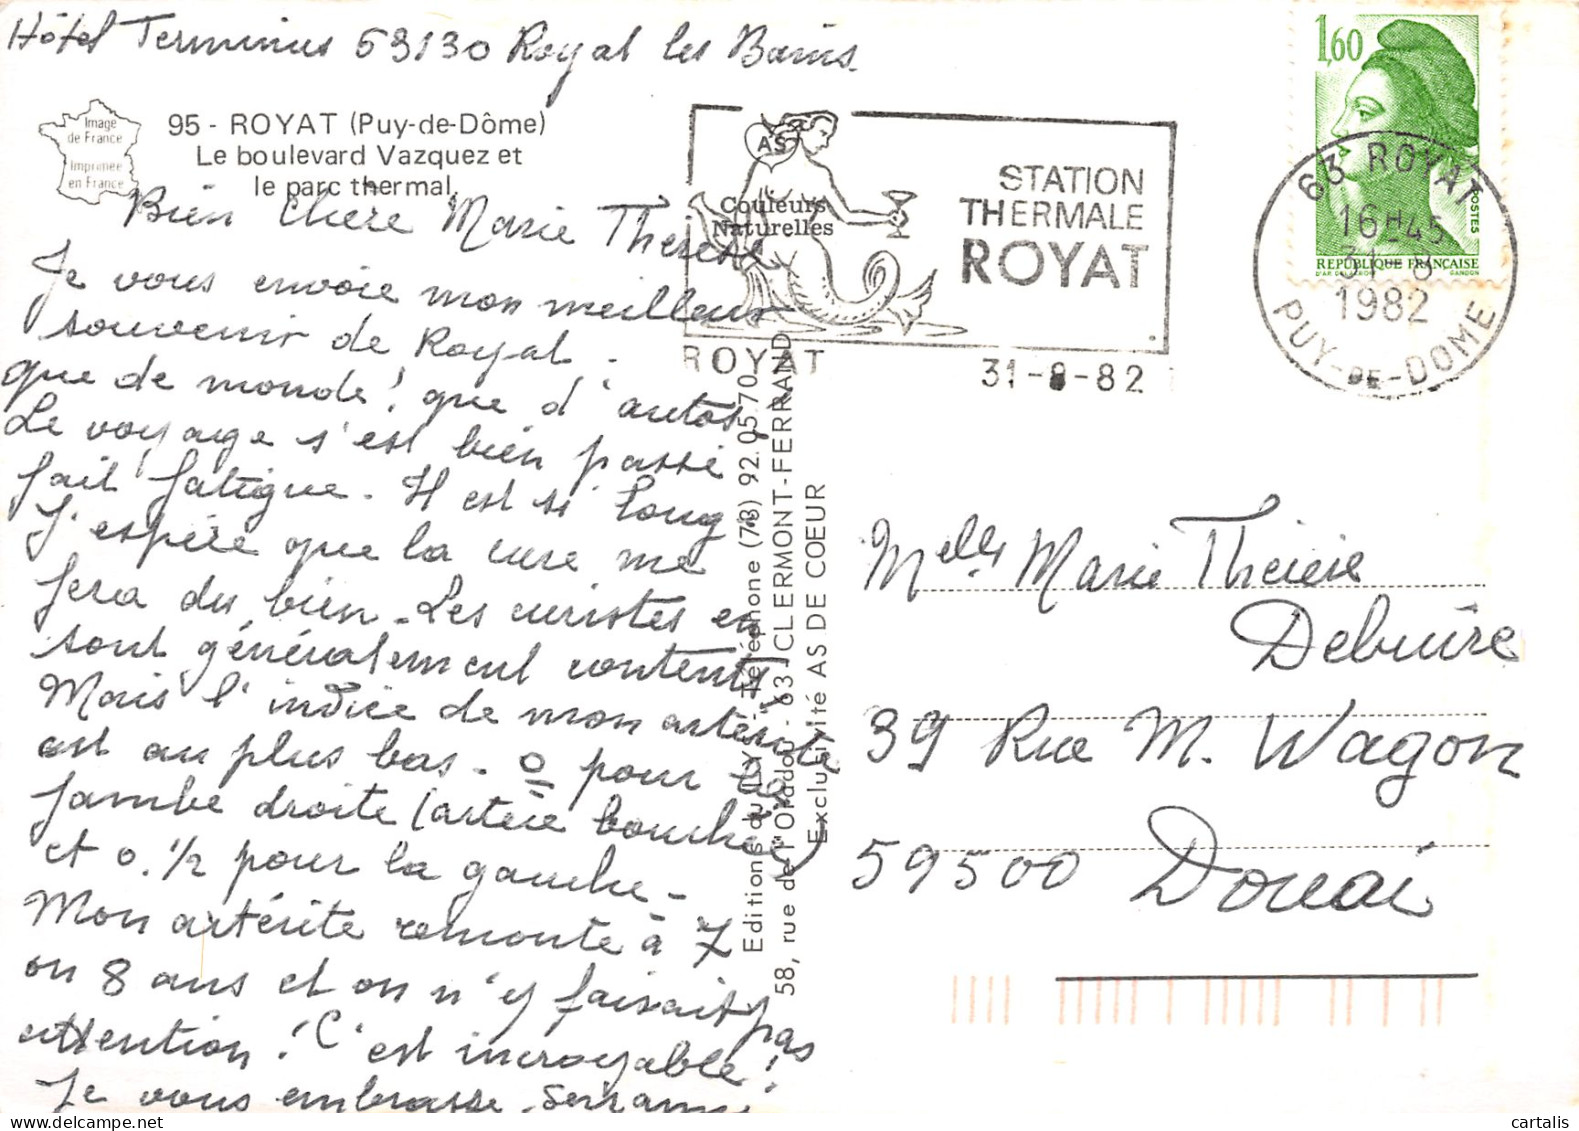 Hôtel Terminus 63130 Royat les Bains.
Image
de France
Imprimée
en France
95 - ROYAT (Puy-de-Dôme)
Le boulevard Vazquez et
le parc thermal.
AS
Couleurs
Naturelles
STATION
THERMALE
ROYAT
ROYAT
31-8-82
1,60
POSTES
RÉPUBLIQUE FRANÇAISE
GANDON
63 ROYAT
16H45
31-8
1982
PUY-DE-DOME
Bien Chère Marie Thérèse
Je vous envoie mon meilleur
souvenir de Royat.
que de monde! que d'autos!
Le voyage s'est bien passé
fait fatigue. Il est si long
J'espère que la cure me
fera du bien. Les curistes en
sont généralement contents,
Mais l'indice de mon artérite
est au plus bas. 0 pour la
jambe droite (artère bouchée)
et 0.1/2 pour la gauche -
Mon artérite remonte à 7
on 8 ans et on n'y faisait pas
attention! C'est incroyable!
Je vous embrasse.
Téléphone (73) 92.05.70
58, rue de l'Oradou - 63 CLERMONT-FERRAND
Exclusivité AS DE COEUR
Melle Marie Thérèse
Debuire
39 Rue M. Wagon
59500 Douai
cartalis